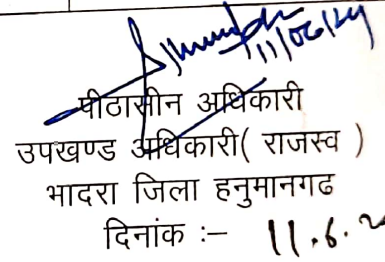 11/06/24
पीठासीन अधिकारी
उपखण्ड अधिकारी( राजस्व )
भादरा जिला हनुमानगढ
दिनांक :– 11.6.2